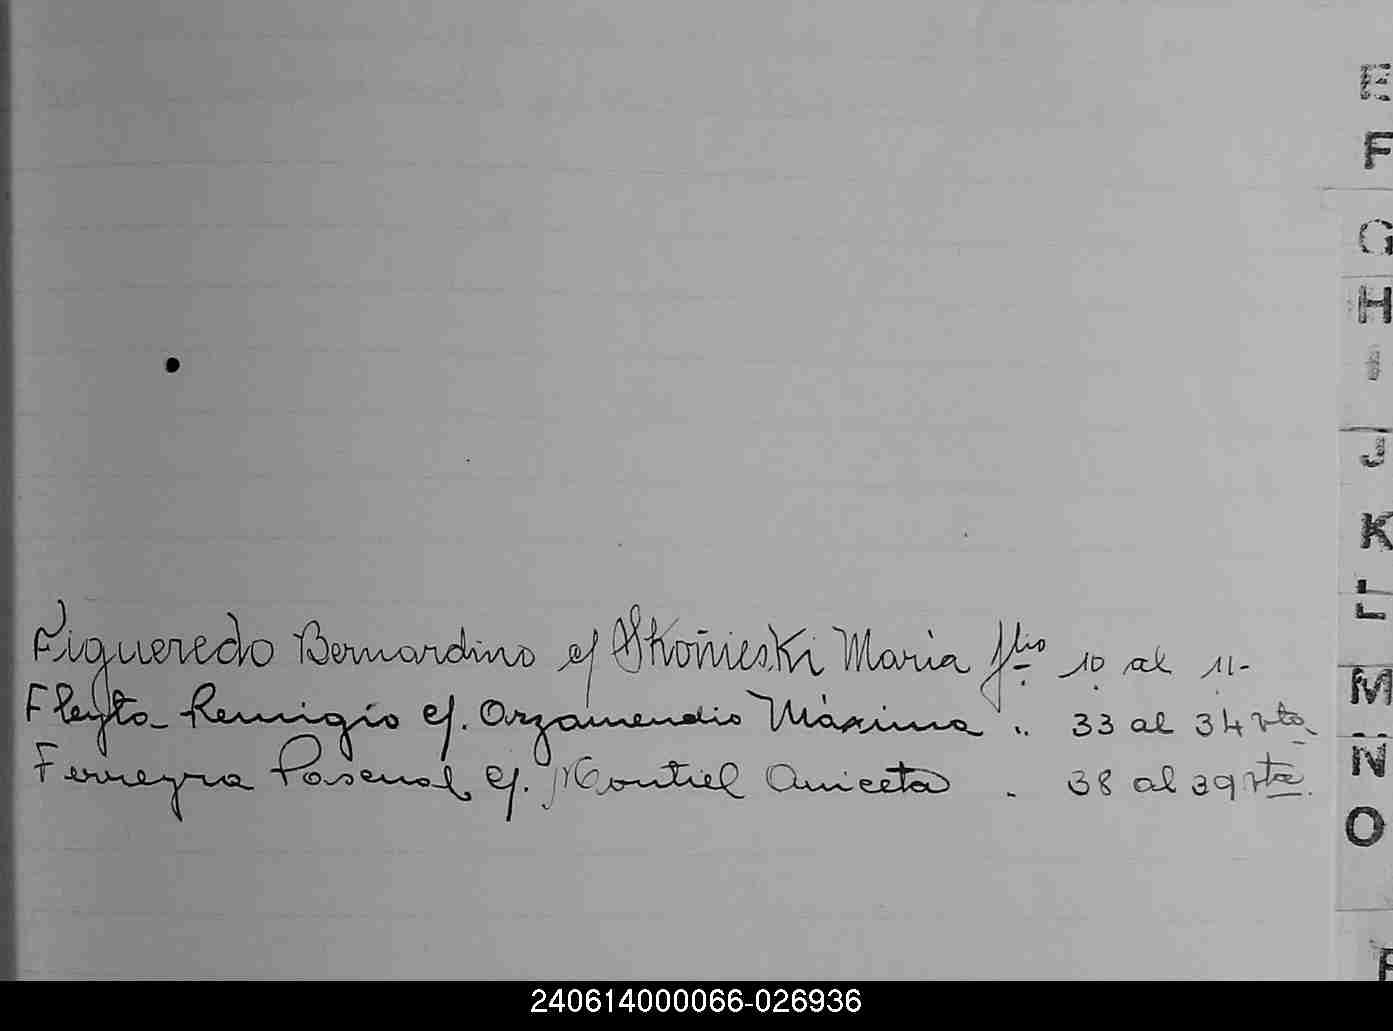 E
F
G
H
I
J
K
L
M
N
O
P
Figueredo Bernardino c/ Skonieski Maria flio 10 al 11-
Fleyta Remigio c/. Orzamendio Máxima " 33 al 34 vto
Ferreyra Pascual c/. Montiel Aniceta . 38 al 39 vta.
240614000066-026936